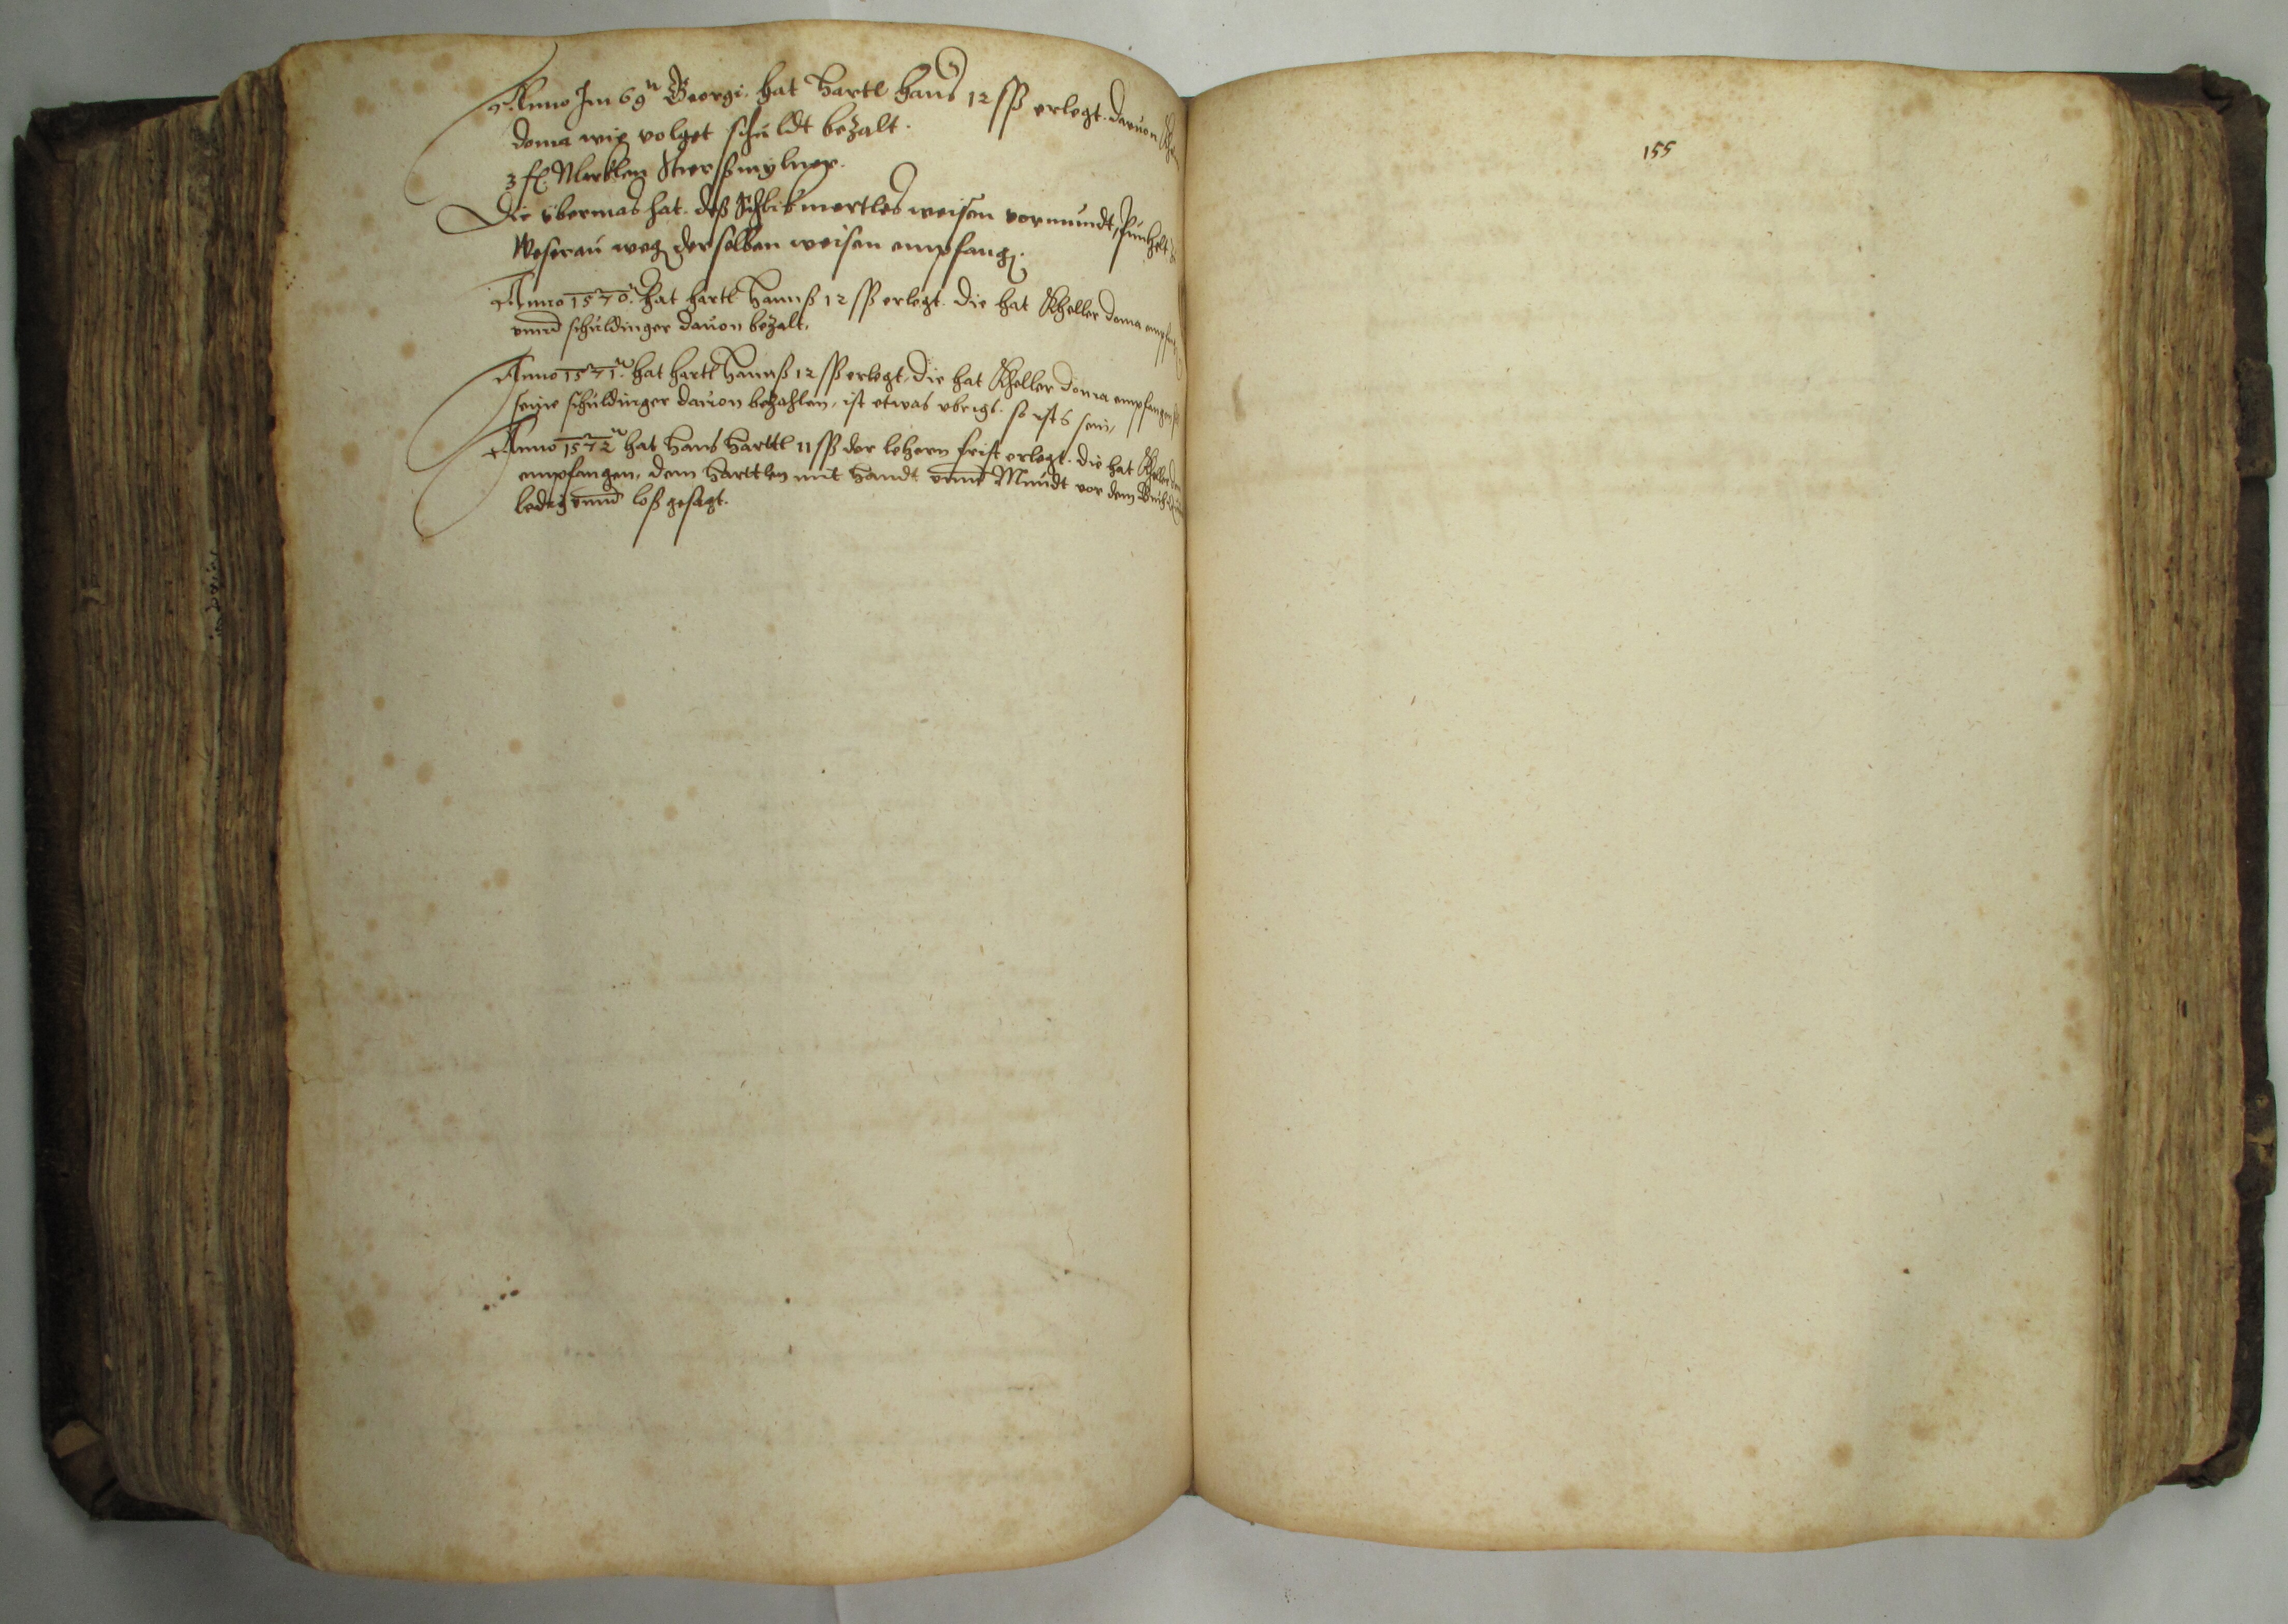 Anno Im 69n Georgi. hat Hartl Hans 12 ss erlegt. dauon
doma wie volget schuldt bezalt.
3 fl Mertlen
Die übermas hat. deß mertles weisen vormundt,
weg derselben weisen empfang.
Anno 1570n. hat Hartl Hannß 12 ss erlegt. die hat Kheller doma
vnnd schuldinger dauon bezalt.
Anno 1571n. hat Hartl Hannß 12 ss erlegt, die hat Kheller doma empfangen
seine schuldinger dauon bezahlen, ist etwas vbrigs. so ists sein,
Anno 1572n hat Hans Harttl 11 ss der lezern frist erlegt. die hat Kheller
empfangen, dem Harttlen mit Handt vnnd Mundt vor dem Buch
ledig vnnd loß gesagt.
155